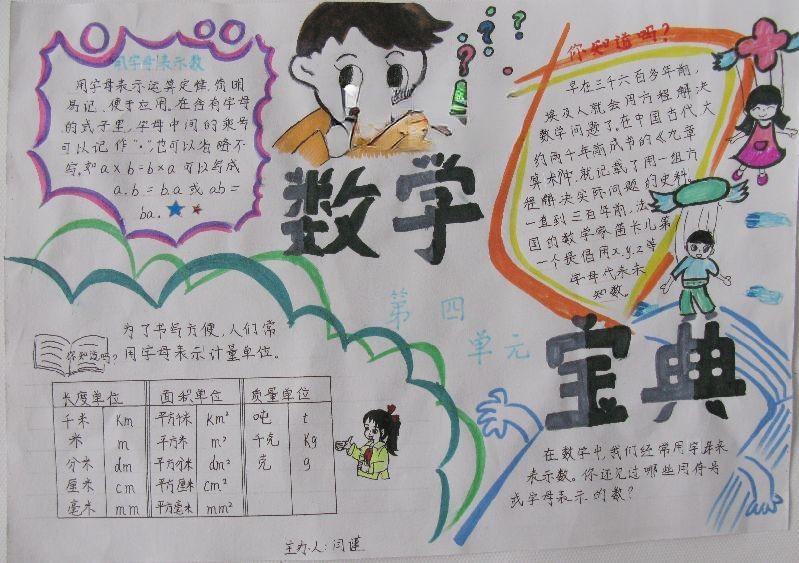 用字母表示数
用字母表示运算定律,简明
易记,便于应用。在含有字母
的式子里,字母中间的乘号
可以记作“·”,也可以省略不
写,如a×b=b×a可以写成
a.b=b.a或ab=
ba.
数学
第四
单元
宝典
你知道吗?
早在三千六百多年前,
埃及人就会用方程解决
数学问题了,在中国古代,大
约两千年前成书的《九章
算术》中,就记载了用一组方
程解决实际问题的史料。
一直到三百年前,法
国的数学家笛卡儿第
一个提倡用x.y.z等
字母代表未
知数。
你知道吗?
为了书写方便,人们常
用字母表示计量单位。
长度单位 面积单位 质量单位
千米 Km 平方千米 Km² 吨 t
米 m 平方米 m² 千克 Kg
分米 dm 平方分米 dm² 克 g
厘米 cm 平方厘米 cm²
毫米 mm 平方毫米 mm²
在数学中,我们经常用字母来
表示数。你还见过哪些用符号
或字母表示的数?
主办人:闫谨